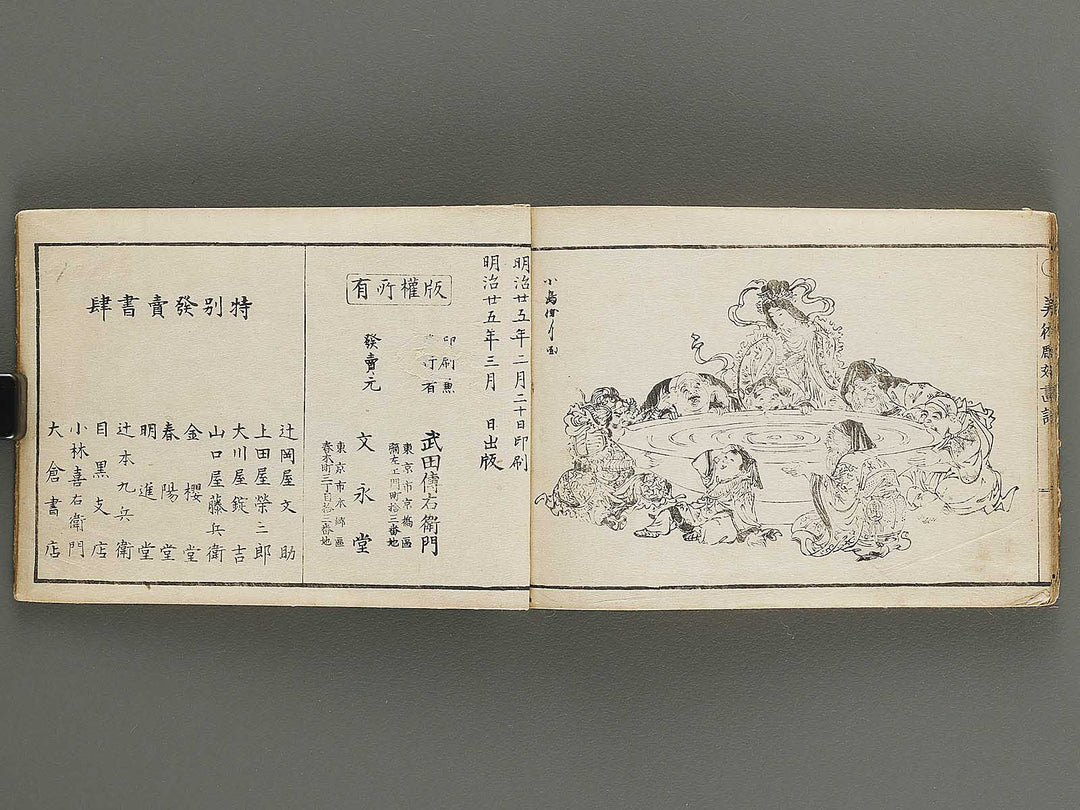 小島
明治廿五年二月二十日印刷
明治廿五年三月 日出版
版權所有
印刷兼
行者
武田傳右衛門
東京市京橋區
彌左エ門町拾二番地
發賣元
文永堂
東京市本郷區
春木町三丁目拾二番地
特別發賣書肆
辻岡屋文助
上田屋榮三郎
大川屋錠吉
山口屋藤兵衛
金櫻堂
春陽堂
明進堂
辻本九兵衛
目黒支店
小林喜右衛門
大倉書店